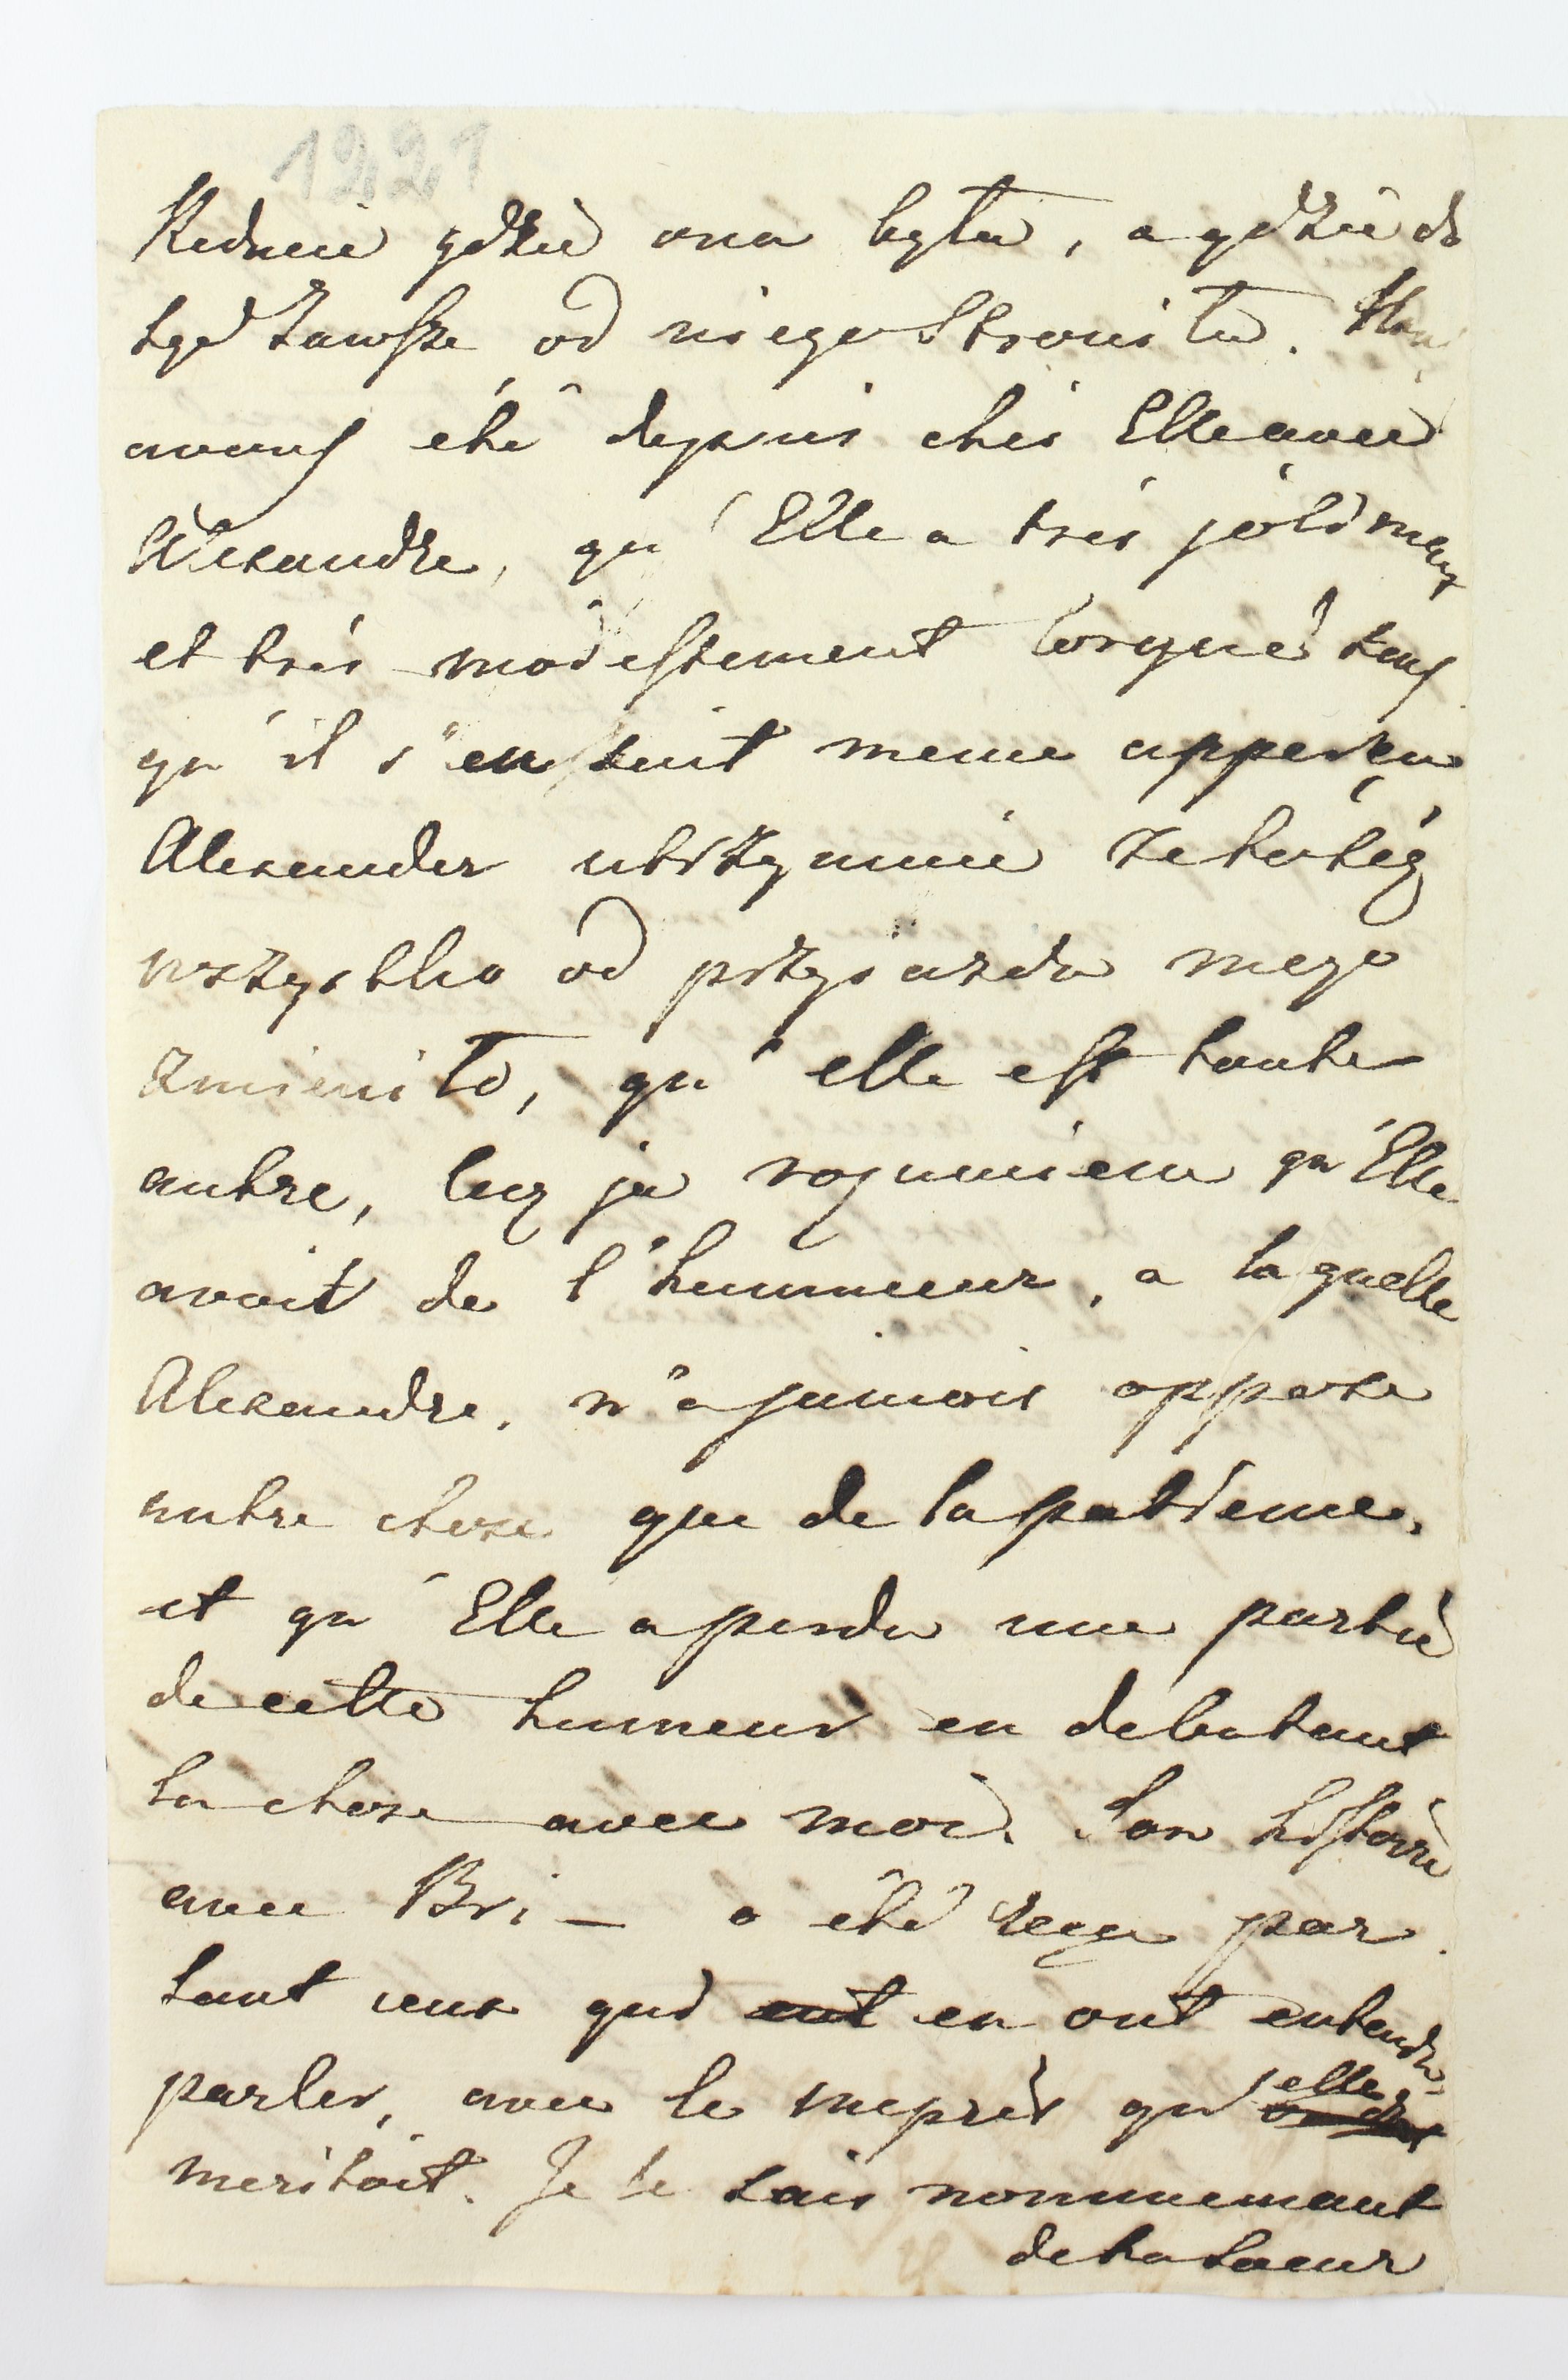 1221
Kednié gdzie ona była, a gdzie do
tąd zawsze od niego Stroniła.
avons été depuis chés Elle avec
Alexandre, qu'Elle a très joliment
et très modestement lorgné sans
qu'il s'en soit meme apperçu
Alexander utrzymuie że to też
wszystko od przyiazdu mego
zmieniło, qu'elle est toute
autre, lecz ja rozumiem qu'Elle
avoit de l'hummeur, a la quelle
Alexandre, n'a jamois oppose
autre chose que de la patience,
et qu'Elle a perdu une partie
de cette humeur en debutant
la chose avec moi. Son histoire
avec Bri — a été reçu par
tout ceux qui ont en ont entendu
parler, avec le mepris qu'elle
meritoit. Je le sais nommemant
de ta soeur